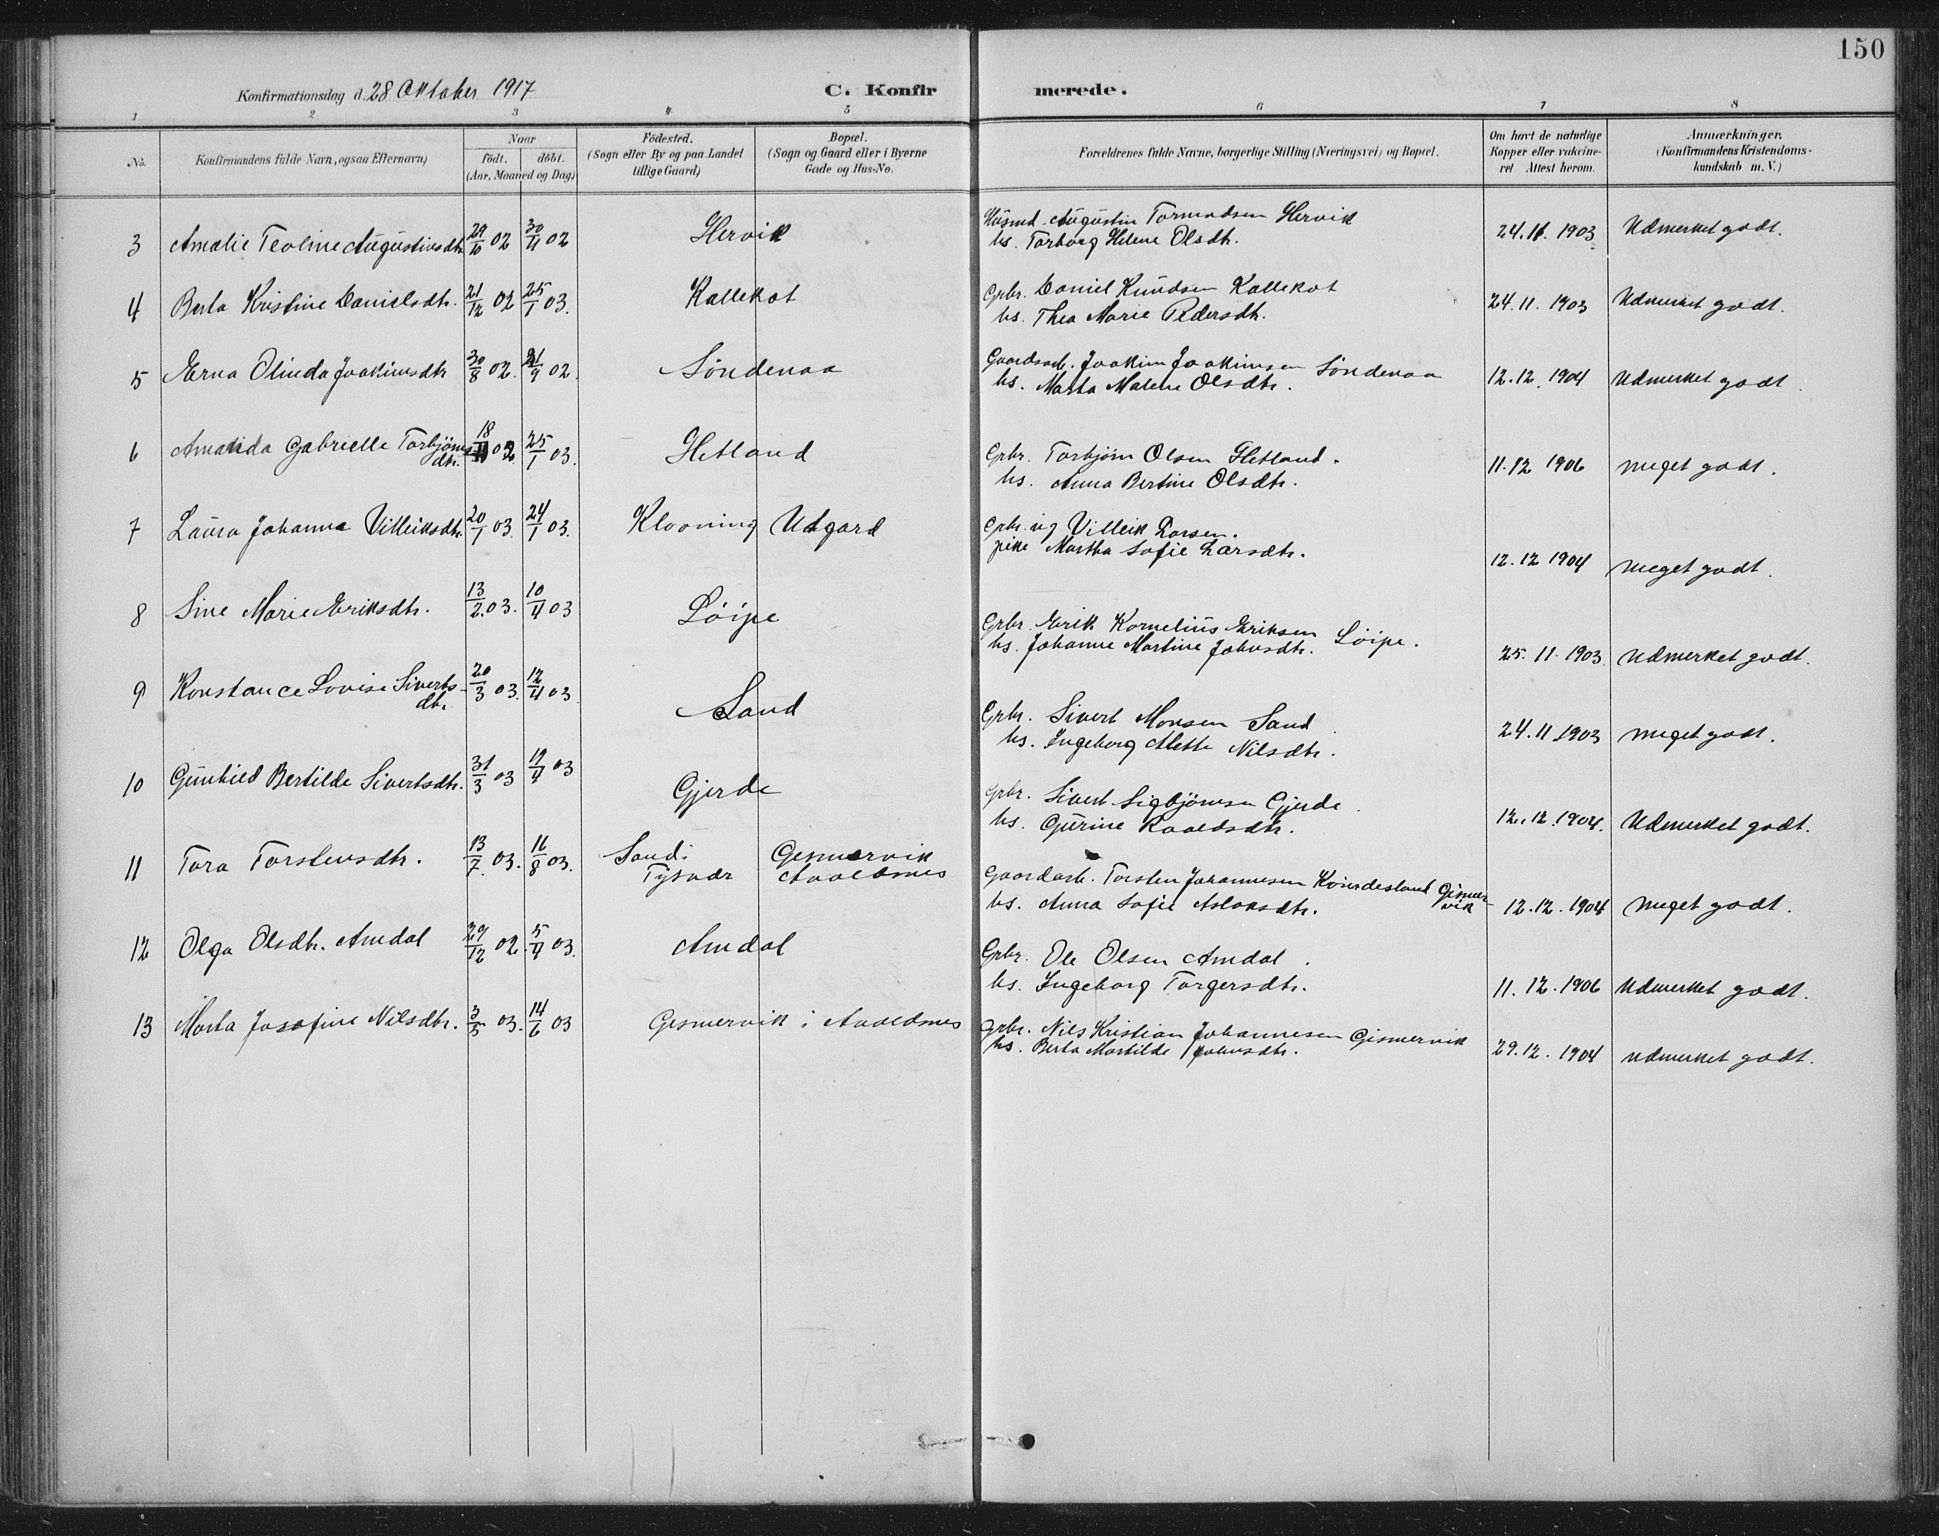 150
Konfirmationsdag d. 28 Oktober 1917
C. Konfirmerede.
1 2 3 4 5 6 7 8
No.
Konfirmandens fulde Navn, ogsaa Efternavn)
Naar
født. døbt.
(Aar, Maaned og Dag)
Fødested.
(Sogn eller By og paa Landet
tillige Gaard)
Bopæl.
(Sogn og Gaard eller i Byerne
Gade og Hus-No.
Forældrenes fulde Navne, borgerlige Stilling (Næringsvei) og Bopæl.
Om havt de naturlige
Kopper eller vakcine-
ret Attest herom.
Anmærkninger.
(Konfirmandens Kristendoms-
kundskab m. V.)
3 Amalie Teoline Augustinsdtr. 29/10 02 30/11 02 Hervik
Husmd. Augustin Tormodsen Hervik
hs. Torborg Helene Olsdtr.
24.11.1903 Udmerket godt.
4 Berta Kristine Danielsdtr. 21/12 02 25/1 03. Kallekot
Grbr. Daniel Knudsen Kallekot
hs. Thea Marie Pedersdtr.
24.11.1903 Udmerket godt.
5 Erna Olinda Joakimsdtr 30/8 02. 21/9 02. Søndenaa
Gaardsarb. Joakim Joakimsen Søndenaa
hs. Marta Malene Olsdtr.
12.12.1904 Udmerket godt.
6 Amanda Gabrielle Torbjørns
dtr. 18/11 02 25/1 03. Hetland
Grbr. Torbjørn Olsen Hetland.
hs. Anna Bertine Olsdtr.
11.12 1906 meget godt.
7 Laura Johanna Villeiksdtr. 20/1 03. 24/1 03. Klovning Udgard
Grbr. ug Villeik Larsen.
pike Martha Sofie Larsdtr.
12.12 1904 meget godt.
8 Sine Marie Eriksdtr. 13/2. 03. 10/4 03 Løipe
Grbr. Erik Kornelius Eriksen Løipe.
hs. Johanne Martine Johnsdtr.
25.11.1903 Udmerket godt.
9 Konstance Lovise Siverts-
dtr. 20/3 03. 12/4 03. Sand
Grbr. Sivert Monsen Sand
hs. Ingeborg Mette Nilsdtr.
24.11.1903 meget godt.
10 Gunhild Bertilde Sivertsdtr. 31/3 03 19/4 03 Gjerde
Grbr. Sivert Sigbjørnsen Gjerde.
hs. Gurine Roaldsdtr.
12.12.1904. Udmerket godt.
11 Tora Torstensdtr. 13/7. 03. 16/8 03. Sand i
Tysvær Gesmervik
Avaldsnes
Gaardarb. Torsten Johannesen Kvindesland Gismer-
vik
hs. Anna Sofie Aslaksdtr.
12.12.1904 meget godt.
12 Olga Olsdtr. Amdal 29/12 02. 5/4 03. Amdal
Grbr. Ole Olsen Amdal.
hs. Ingeborg Torgersdtr.
11.12.1906 Udmerket godt.
13 Marta Josefine Nilsdtr. 3/5 03. 14/6 03 Gesmervik i Avaldsnes
Grbr. Nils Kristian Johannesen Gismervik
hs. Berta Martilde Johnsdtr.
29.12.1904 udmerket godt.